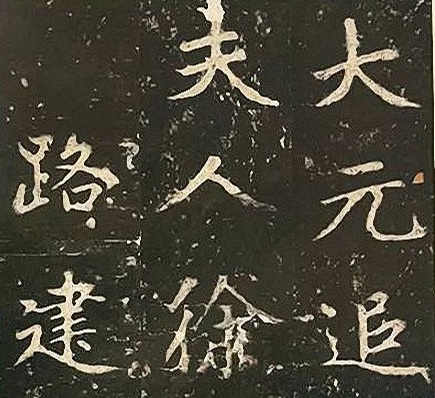 大元追
夫人徐
路建